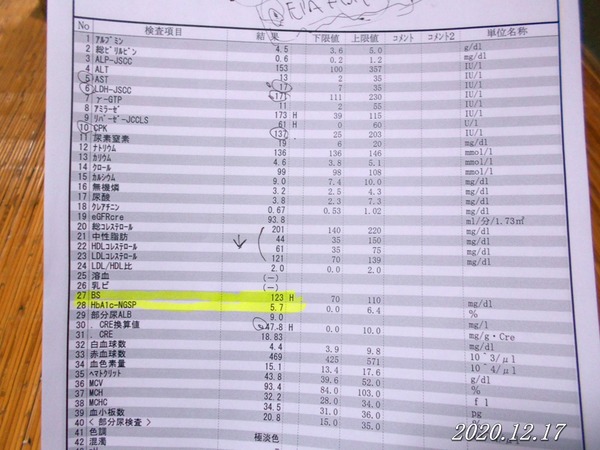 EPA
No 検査項目 結果 下限値 上限値 コメント コメント2 単位名称
1 アルブミン 4.5 3.6 5.0 g/dl
2 総ビリルビン 0.6 0.2 1.2 mg/dl
3 ALP-JSCC 153 100 357 IU/l
4 ALT 13 2 35 IU/l
5 AST 17 7 35 IU/l
6 LDH-JSCC 171 111 230 IU/l
7 γ-GTP 11 2 55 IU/l
8 アミラーゼ 173 H 39 115 IU/l
9 リパーゼ-JCCLS 61 H 0 60 U/l
10 CPK 137 25 203 IU/l
11 尿素窒素 19 6 20 mg/dl
12 ナトリウム 136 136 146 mmol/l
13 カリウム 4.6 3.8 5.1 mmol/l
14 クロール 99 98 108 mmol/l
15 カルシウム 9.0 7.4 10.0 mg/dl
16 無機燐 3.2 2.5 4.3 mg/dl
17 尿酸 3.8 2.3 7.3 mg/dl
18 クレアチニン 0.67 0.53 1.02 mg/dl
19 eGFRcre 93.8 ml/分/1.73㎡
20 総コレステロール 201 140 220 mg/dl
21 中性脂肪 44 35 150 mg/dl
22 HDLコレステロール 61 35 75 mg/dl
23 LDLコレステロール 121 70 139 mg/dl
24 LDL/HDL比 2.0 0.0 2.0
25 溶血 (-)
26 乳ビ (-)
27 BS 123 H 70 110 mg/dl
28 HbA1c-NGSP 5.7 0.0 6.4 %
29 部分尿ALB 9.0 mg/l
30 . CRE換算値 47.8 H 0.0 10.0 mg/g・Cre
31 . CRE 18.83 mg/dl
32 白血球数 4.4 3.9 9.8 10^3/μl
33 赤血球数 469 425 571 10^4/μl
34 血色素量 15.1 13.4 17.6 g/dl
35 ヘマトクリット 43.8 39.6 52.0 %
36 MCV 93.4 84.0 103.0 fl
37 MCH 32.2 28.0 34.0 pg
38 MCHC 34.5 31.0 36.0 %
39 血小板数 20.8 15.0 35.0
40 <部分尿検査>
41 色調 極淡色
42 混濁
2020.12.17